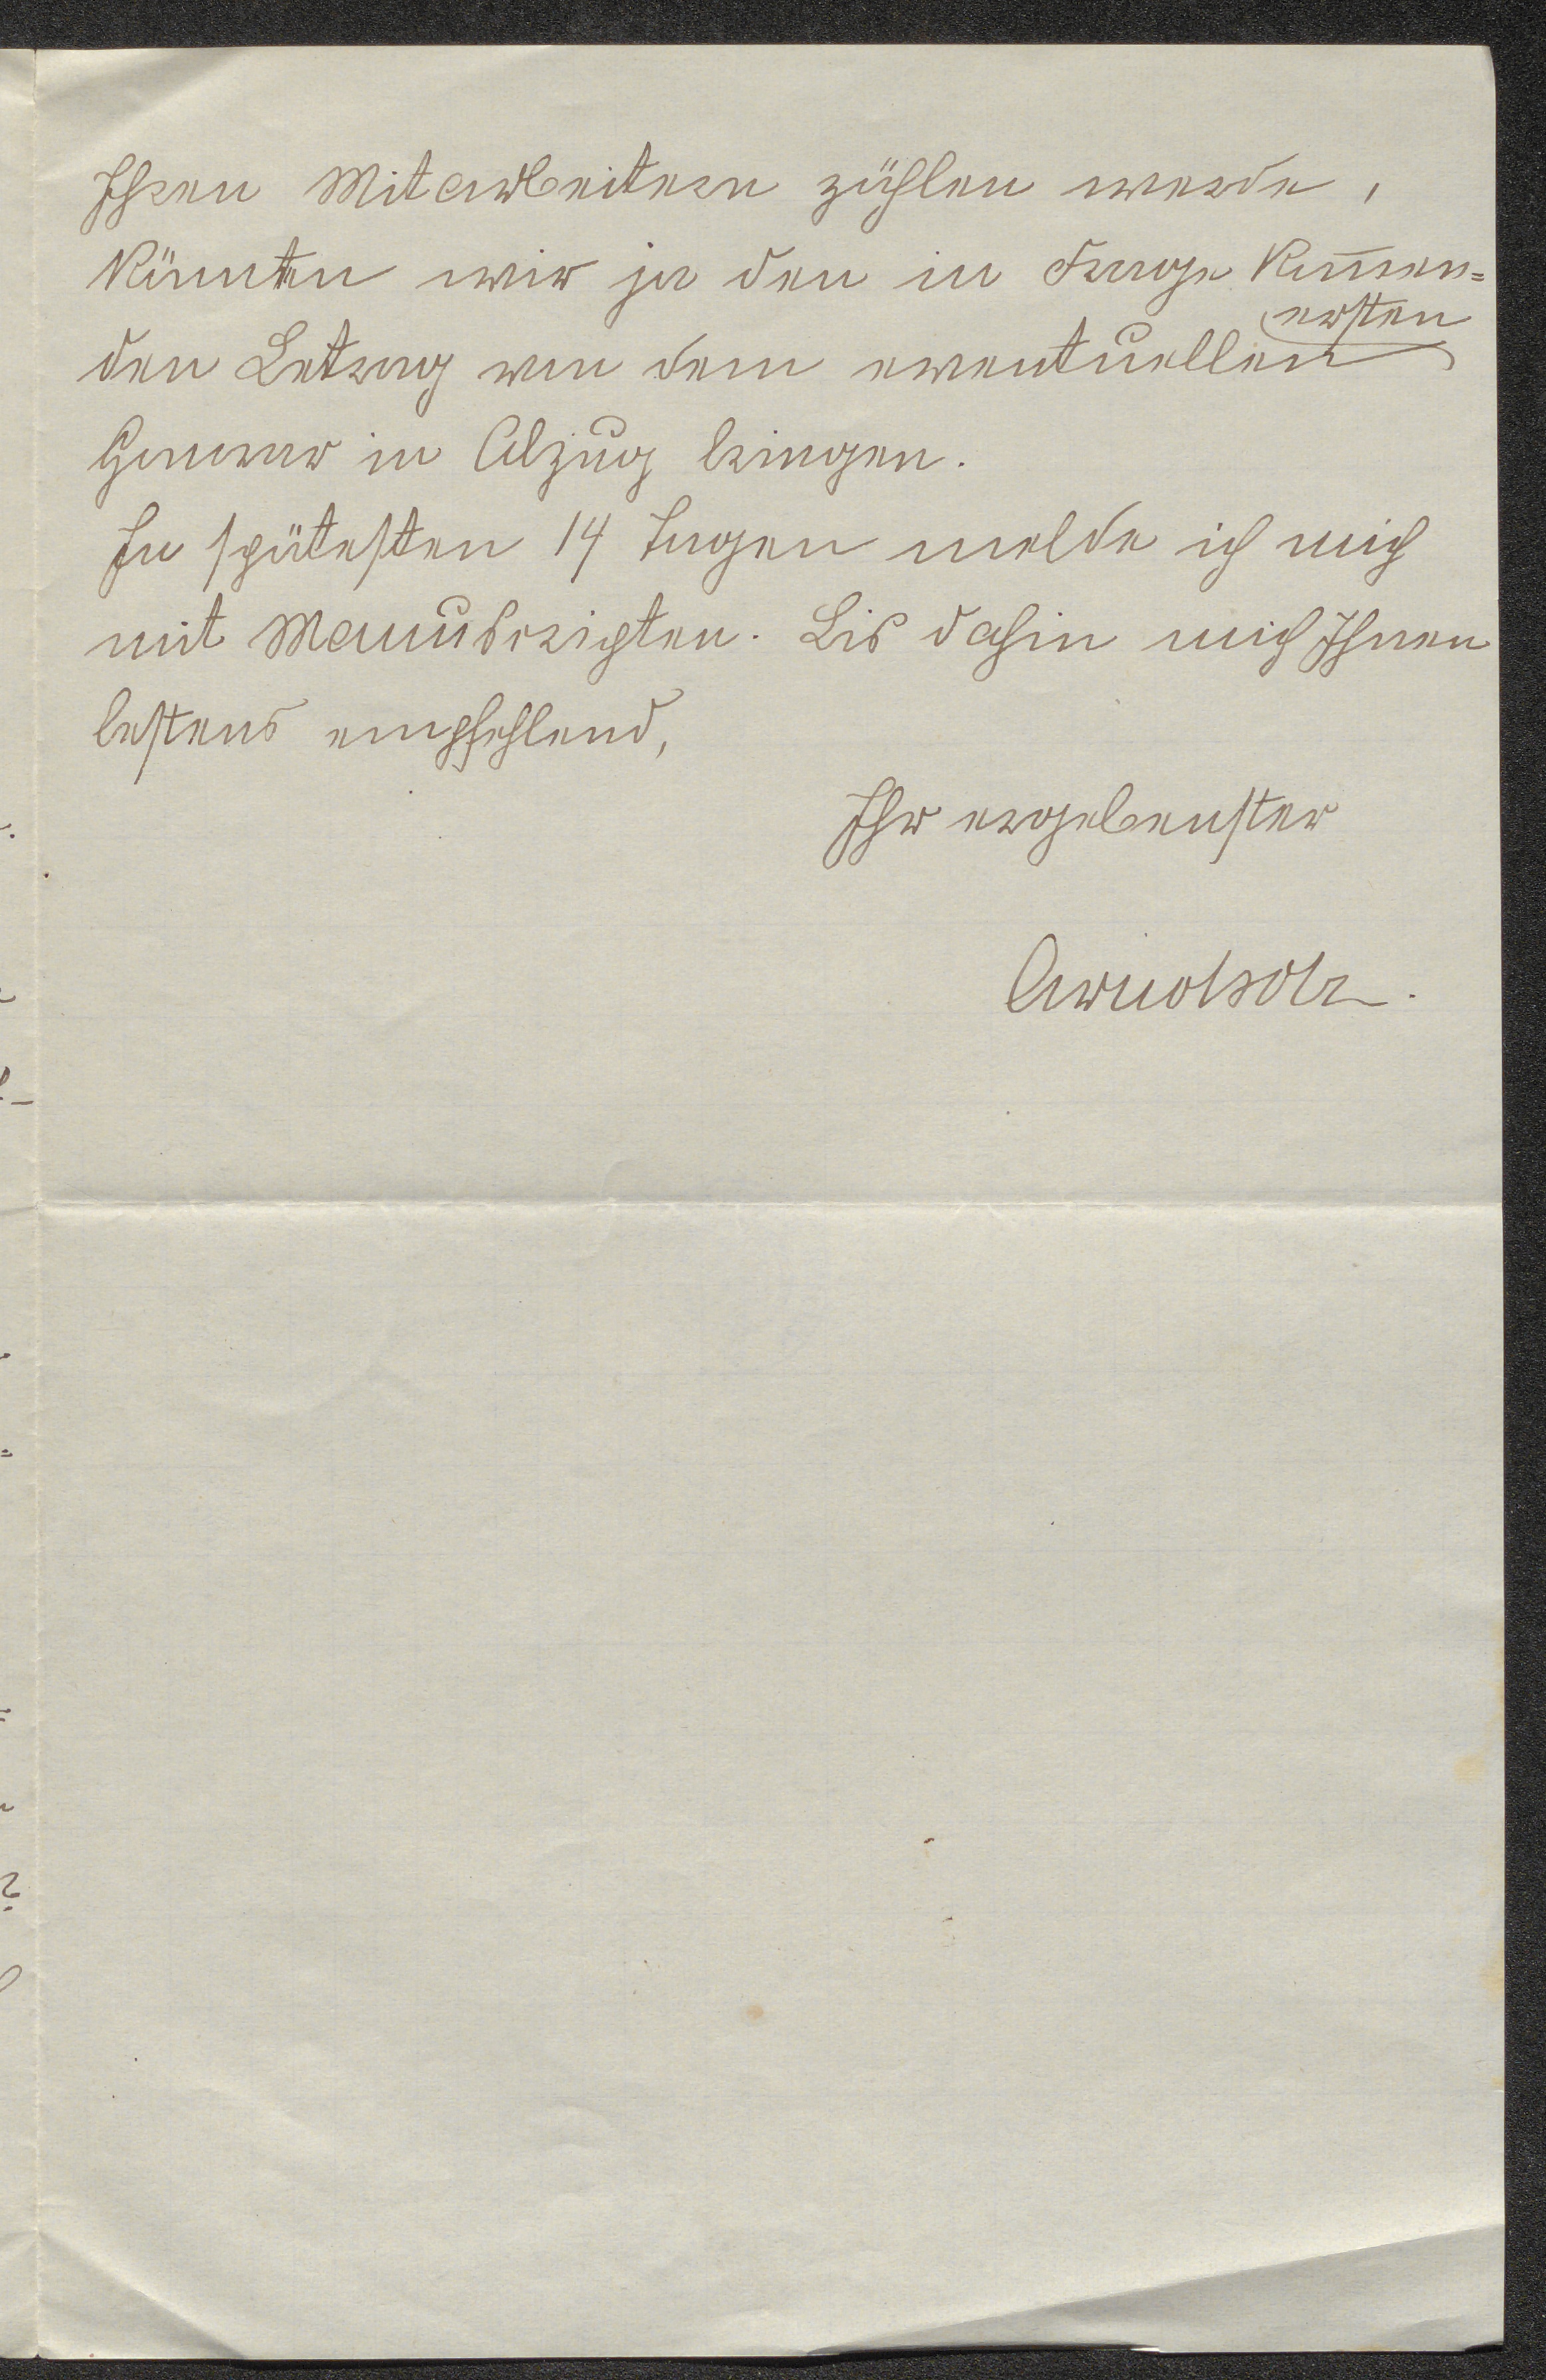 Ihren Mitarbeitern zählen werde,
könnten wir ja den in Frage kom̅en=
den Betrag von dem eventuellen ersten
Honorar in Abzug bringen.
In spätesten 14 Tagen melde ich mich
mit Manuskripten. Bis dahin mich Ihnen
bestens empfehlend,
Ihr ergebenster
Arno Holz.